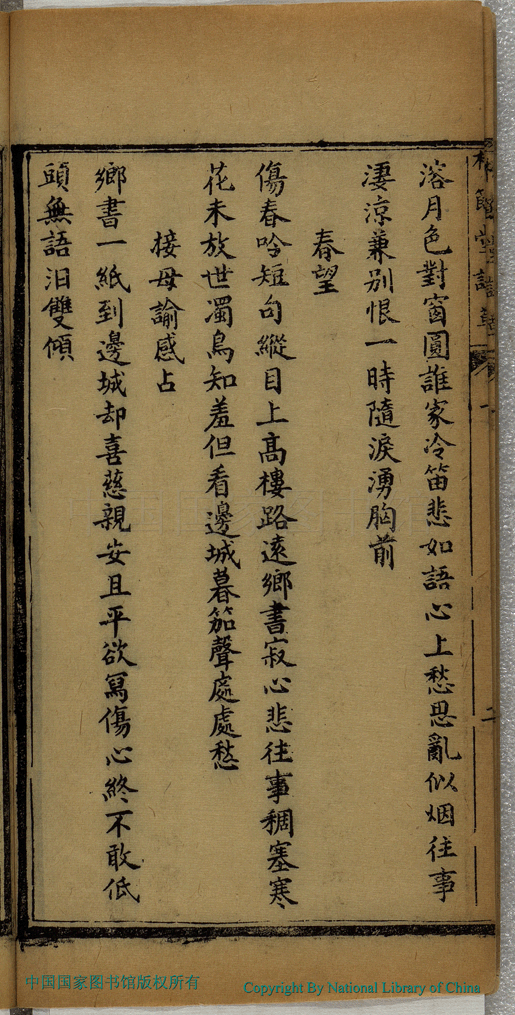 溶月色對窗圓誰家冷笛悲如語心上愁思亂似烟往事
淒涼兼别恨一時隨淚湧胸前
春望
傷春吟短句縱目上高樓路遠鄉書寂心悲往事稠塞寒
花未放世濁鳥知羞但看邊城暮笳聲處處愁
接母諭感占
鄉書一紙到邊城却喜慈親安且平欲寫傷心終不敢低
頭無語泪雙傾
二
中国国家图书馆版权所有
Copyright By National Library of China